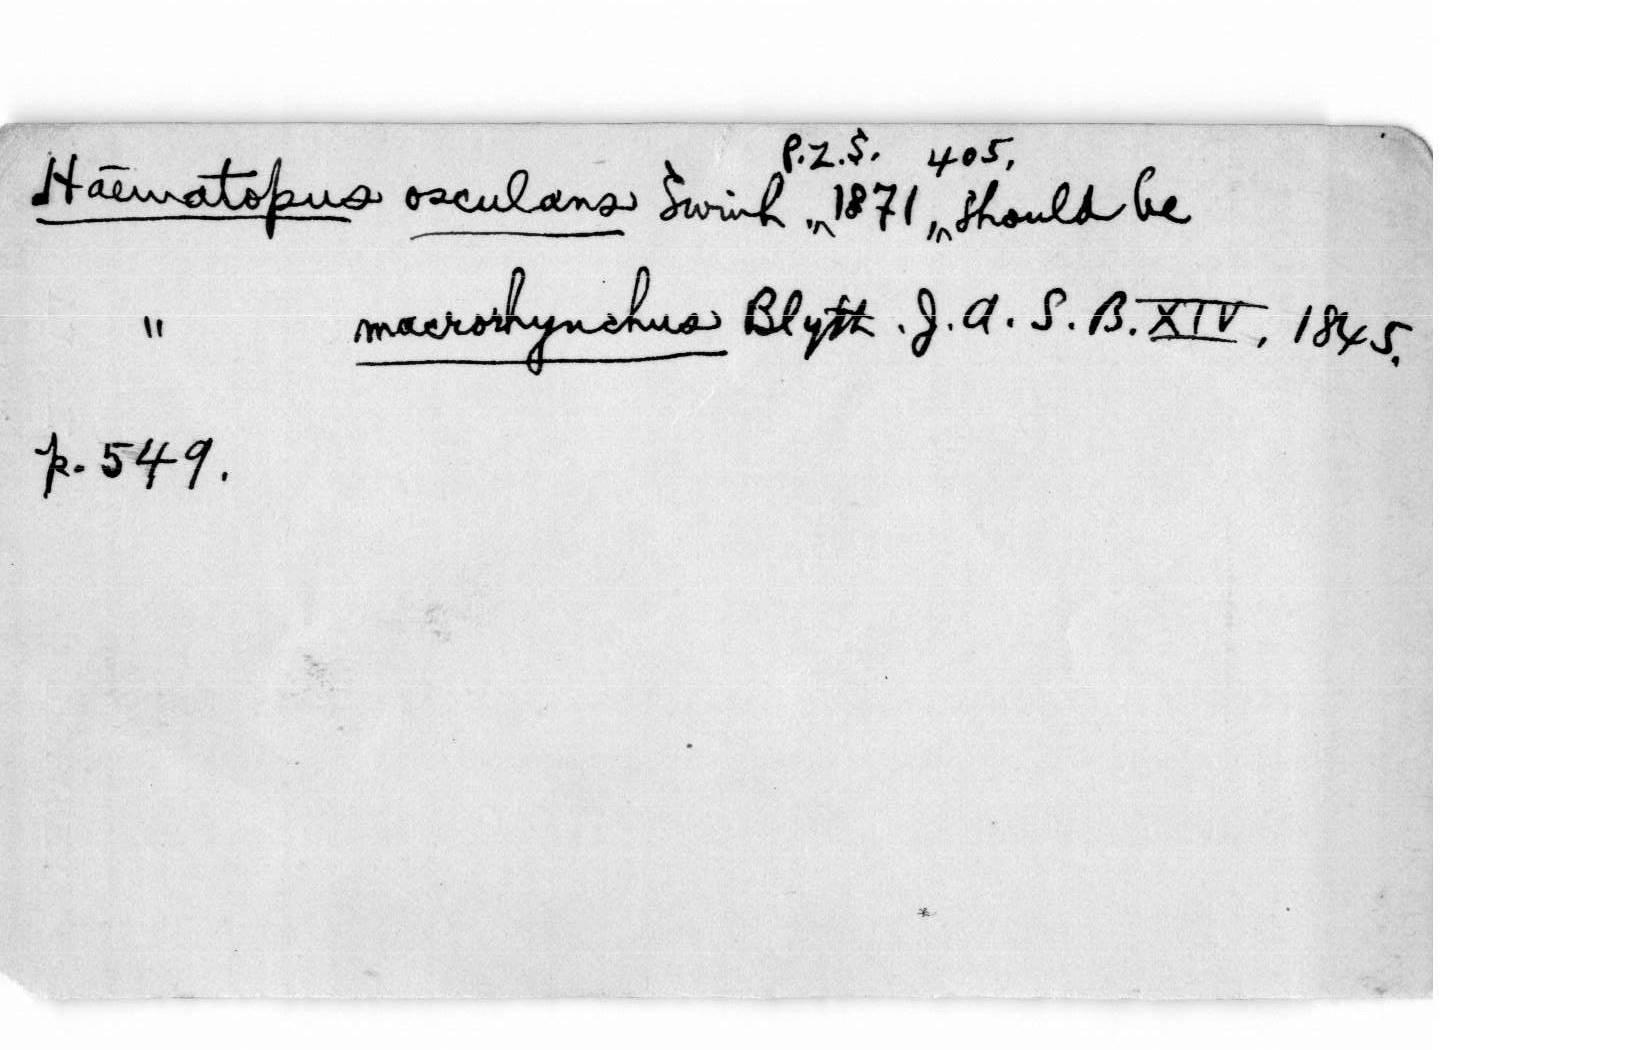 P.Z.S. 405,
Haematopus osculans Swinh 1871 should be
" macrorhynchus Blyth. J. A. S. B. XIV, 1845.
p. 549.